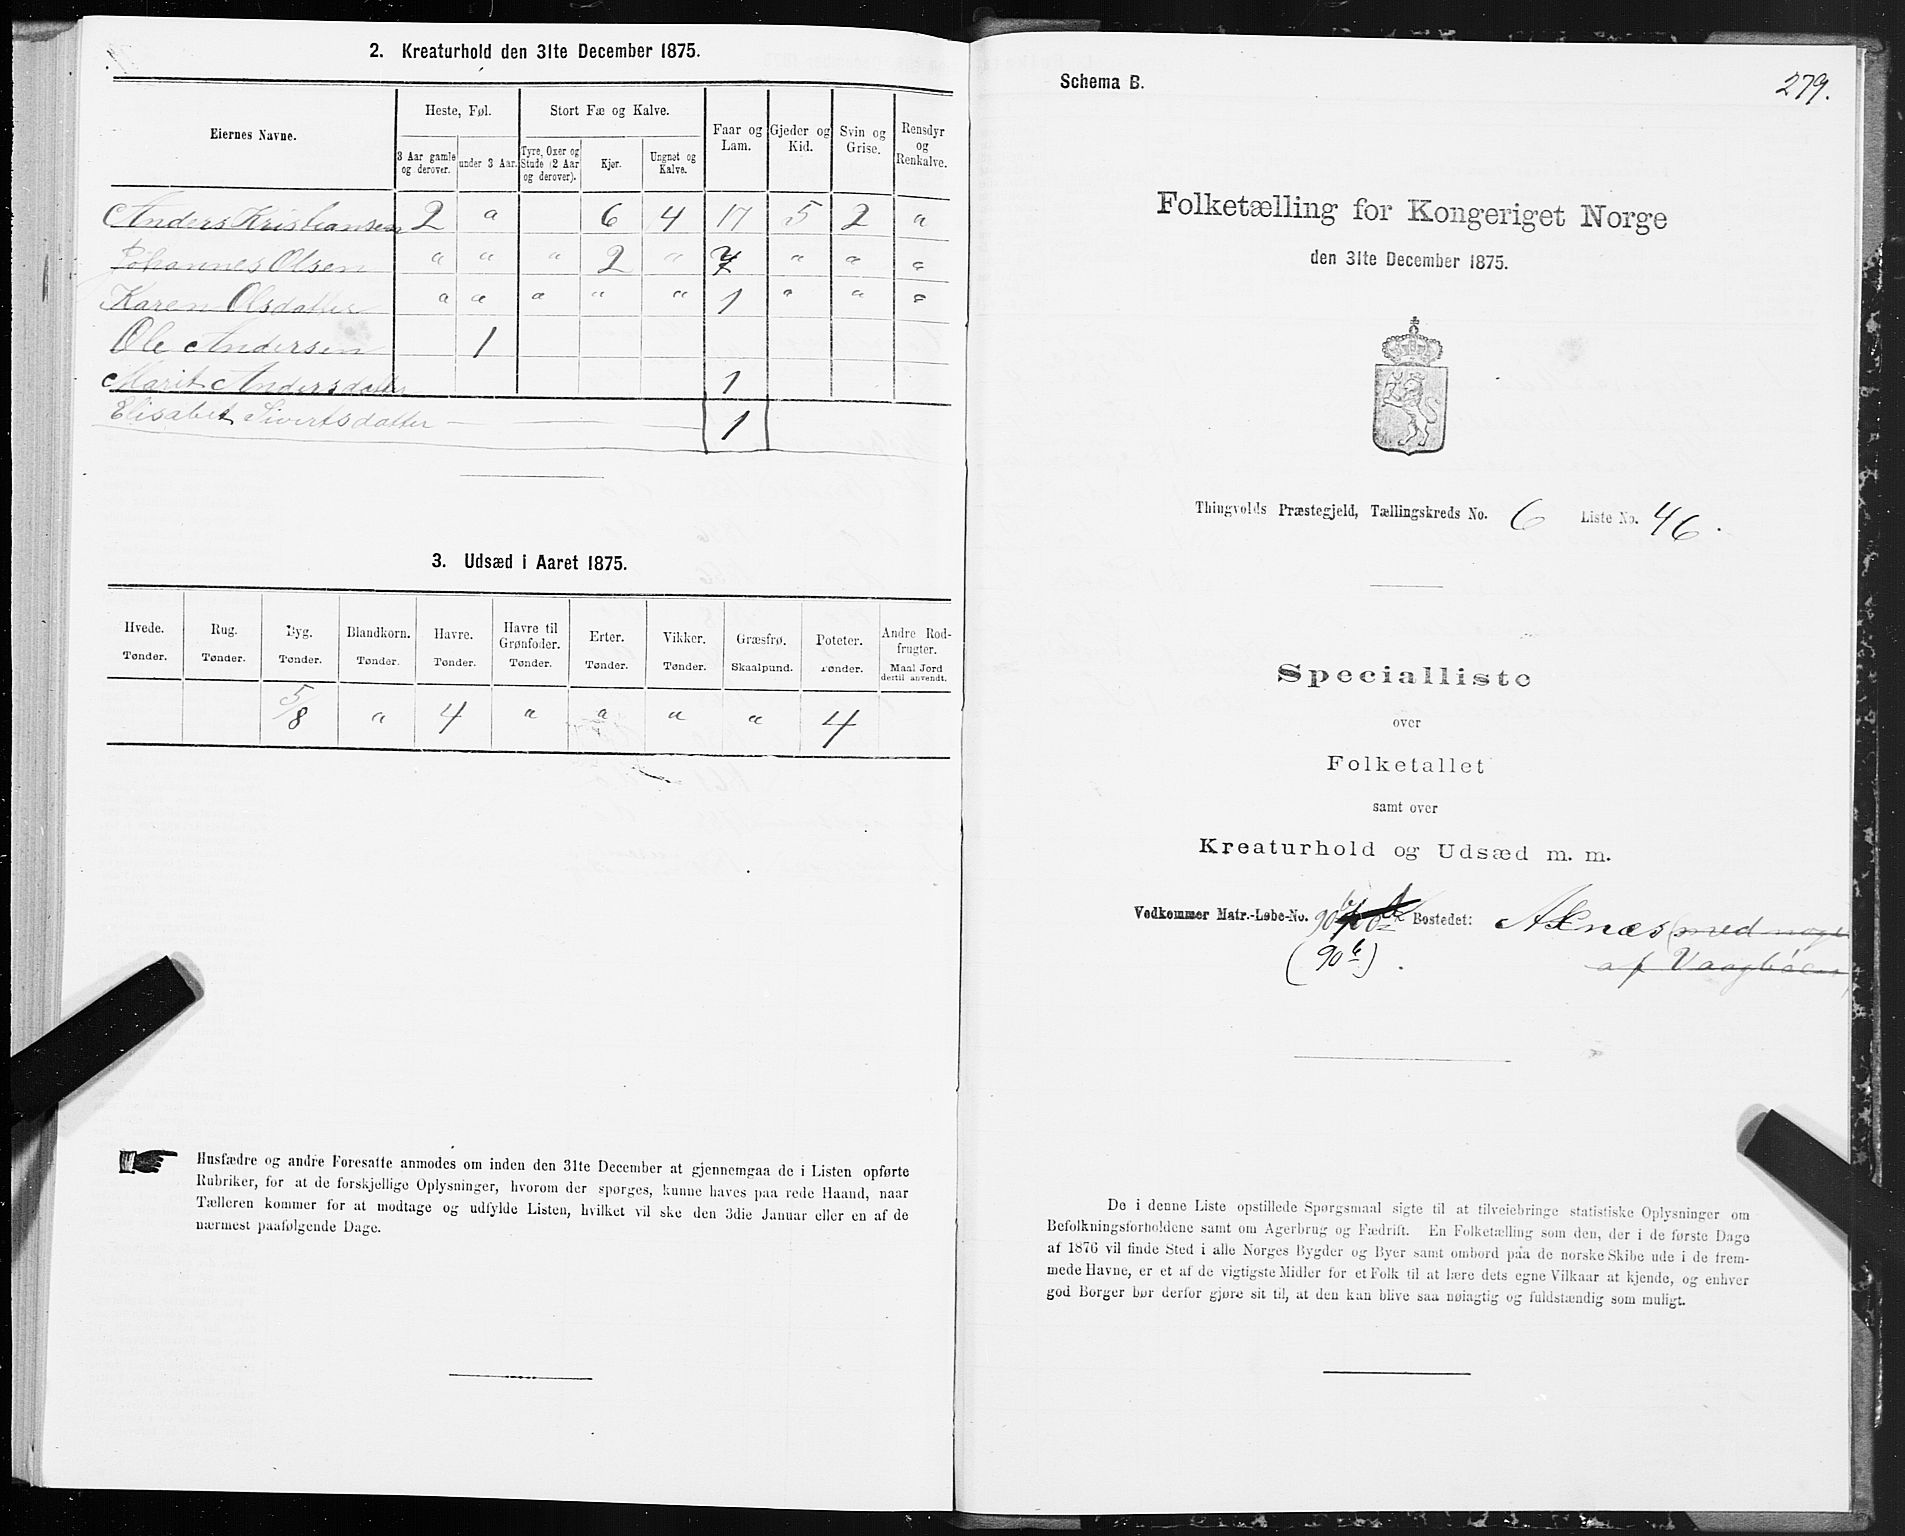 2. Kreaturhold den 31te December 1875.
Eiernes Navne.
Heste, Føl.
Stort Fæ og Kalve.
Faar og Lam.
Gjeder og Kid.
Svin og Grise.
Rensdyr og Renkalve.
3 Aar gamle og derover.
under 3 Aar.
Tyre, Oxer og Stude (2 Aar og derover).
Kjør.
Ungnøt og Kalve.
Anders Kristiansen 2 " 6 4 17 5 2 "
Johannes Olsen " " " 2 " " " "
Karen Olsdatter " " " " " 1 " " "
Ole Andersen 1
Marit Andersdatter 1
Elisabet Sivertsdatter — — — 1
3. Udsæd i Aaret 1875.
Hvede. Rug. Byg. Blandkorn. Havre. Havre til Grønfoder. Erter. Vikker. Græsfrø. Poteter. Andre Rodfrugter.
Tønder. Tønder. Tønder. Tønder. Tønder. Tønder. Tønder. Tønder. Skaalpund. Tønder. Maal Jord dertil anvendt.
5/8 " 4 " " " " 4
Husfædre og andre Foresatte anmodes om inden den 31te December at gjennemgaa de i Listen opførte
Rubriker, for at de forskjellige Oplysninger, hvorom der spørges, kunne haves paa rede Haand, naar
Tælleren kommer for at modtage og udfylde Listen, hvilket vil ske den 3die Januar eller en af de
nærmest paafølgende Dage.
Schema B.
279.
Folketælling for Kongeriget Norge
den 31te December 1875.
Thingvolds Præstegjeld, Tællingskreds No. 6 Liste No. 46.
Specialliste
over
Folketallet
samt over
Kreaturhold og Udsæd m. m.
Vedkommer Matr.-Løbe-No. 90 Bostedet: Axnæs (med noge
(90 b). af Vaagbøen)
De i denne Liste opstillede Spørgsmaal sigte til at tilveiebringe statistiske Oplysninger om
Befolkningsforholdene samt om Agerbrug og Fædrift. En Folketælling som den, der i de første Dage
af 1876 vil finde Sted i alle Norges Bygder og Byer samt ombord paa de norske Skibe ude i de frem-
mede Havne, er et af de vigtigste Midler for et Folk til at lære dets egne Vilkaar at kjende, og enhver
god Borger bør derfor gjøre sit til, at den kan blive saa nøiagtig og fuldstændig som muligt.